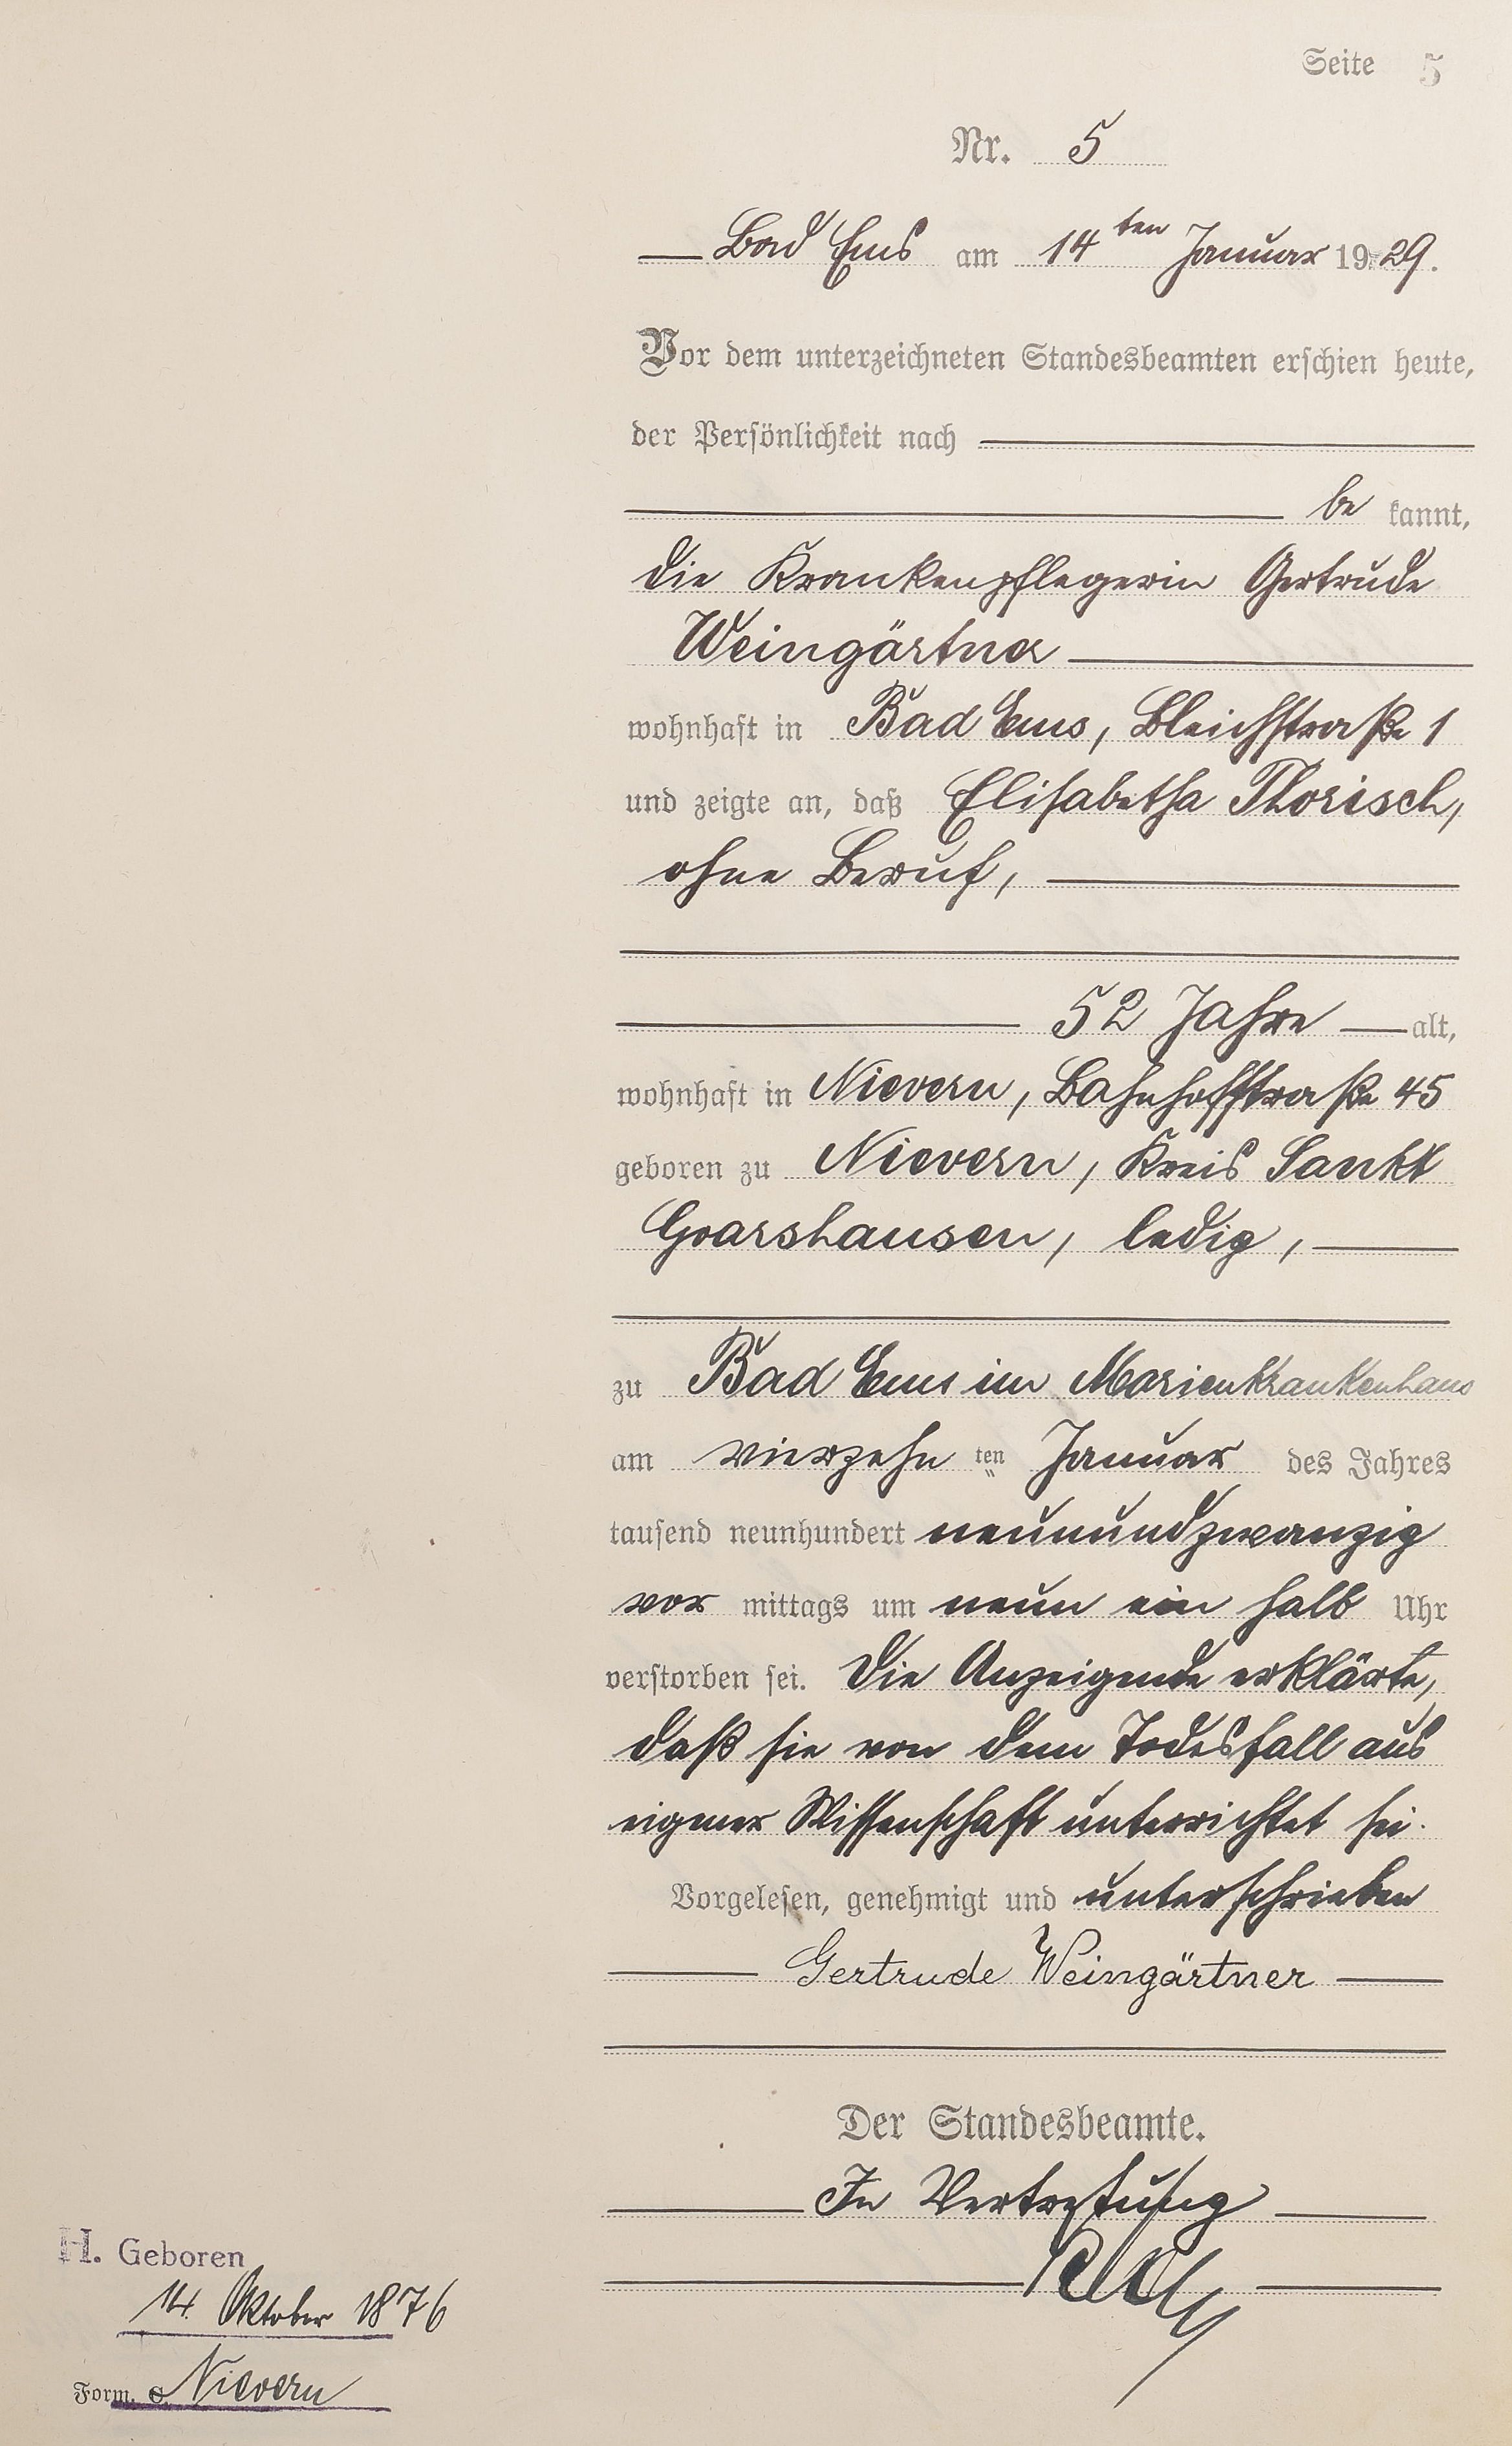 Seite 5
Nr. 5
Bad Ems am 14ten Januar 1929.
Vor dem unterzeichneten Standesbeamten erschien heute,
der Persönlichkeit nach
be kannt,
die Krankenpflegerin Gertrude
Weingärtner
wohnhaft in Bad Ems, Bleichstraße 1
und zeigte an, daß Elisabetha Thorisch,
ohne Beruf,
52 Jahre alt,
wohnhaft in Nievern, Bahnhofstraße 45
geboren zu Nievern, Kreis Sankt
Goarshausen, ledig,
zu Bad Ems im Marienkrankenhaus
am vierzehn ten Januar des Jahres
tausend neunhundert neunundzwanzig
vor mittags um neun ein halb Uhr
verstorben sei. Die Anzeigende erklärte,
daß sie von dem Todesfall aus
eigener Wissenschaft unterrichtet sei.
Vorgelesen, genehmigt und unterschrieben
Gertrude Weingärtner
Der Standesbeamte.
In Vertretung
H. Geboren
14. Oktober 1876
Form. C. Nievern